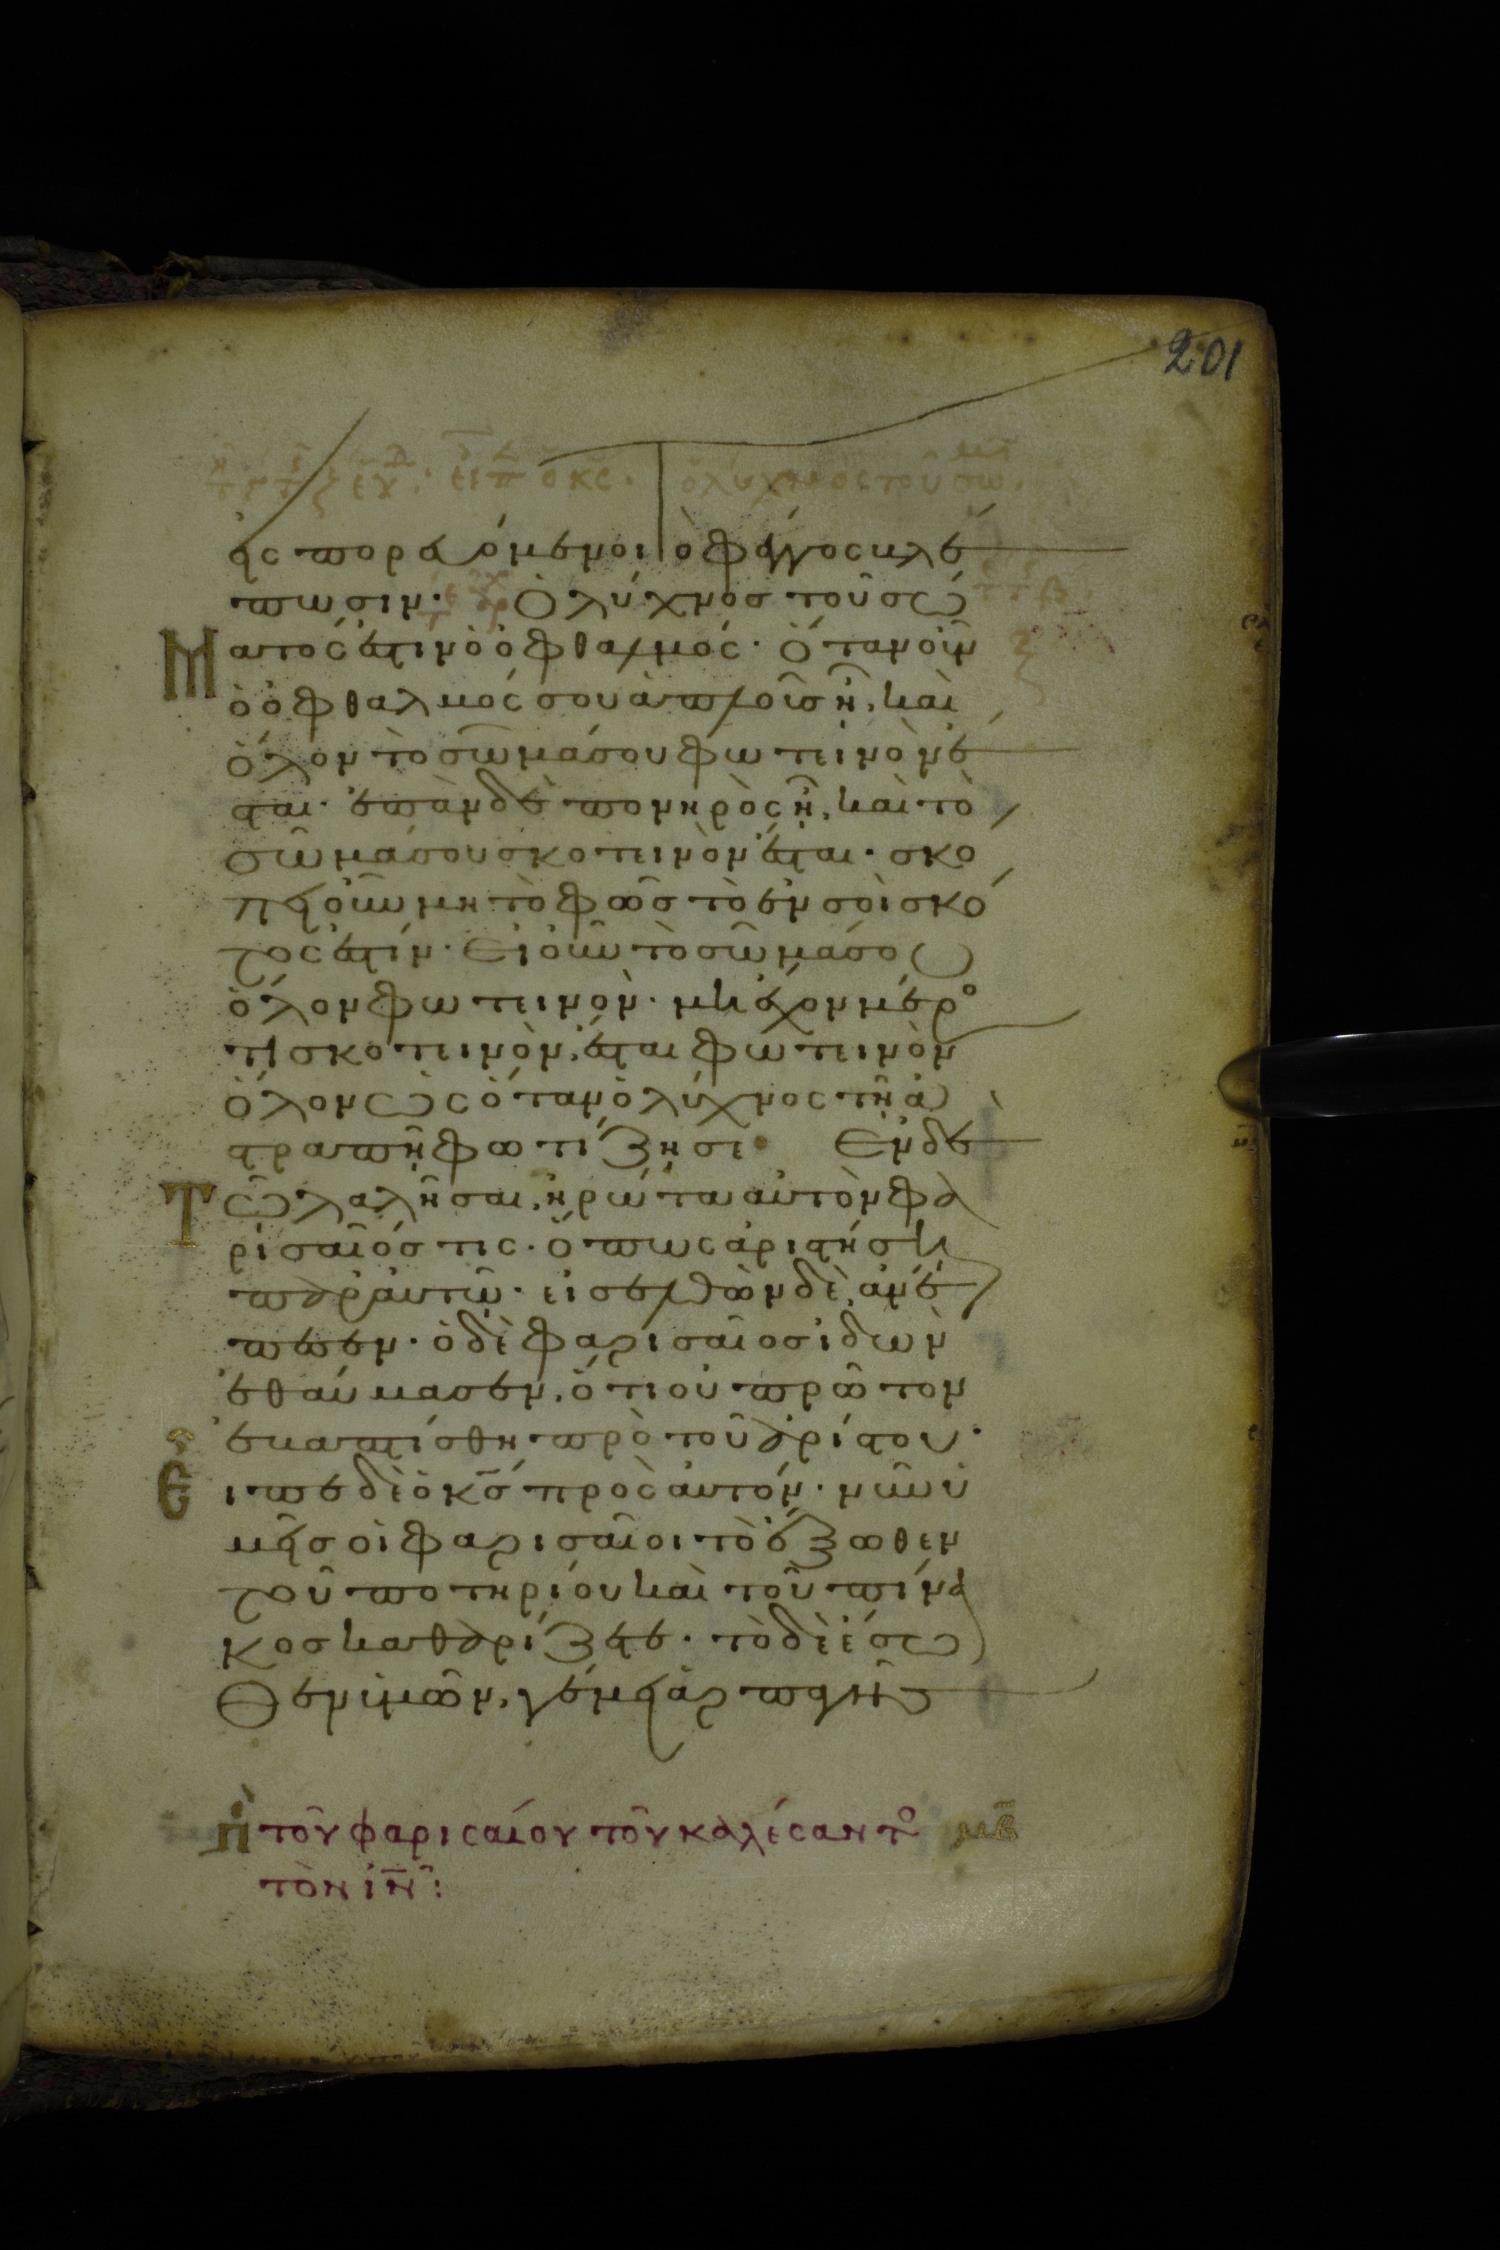 201
ὁ λύχνος τοῦ σω
εισπορευόμενοι τὸ φέγγος βλέ
πωσιν· Ὁ λύχνος τοῦ σώ
Ματός ἐστιν ὁ ὀφθαλμός· ὅταν οὖν
ὁ ὀφθαλμός σου ἁπλοῦς ἦ, καὶ
ὅλον τὸ σῶμά σου φωτεινὸν ἐ
σται· ἐπὰν δὲ πονηρὸς ἦ, καὶ τὸ
σῶμά σου σκοτεινὸν ἔσται· σκό
πει οὖν μη τὸ φῶς τὸ ἐν σοὶ σκό
τος ἐστίν· Εἰ οὖν τὸ σῶμά σου
ὅλον φωτεινὸν· μὴ ἔχον μέρο
τι σκοτεινὸν, ἔσται φωτεινὸν
ὅλον ὡς ὅταν ὁ λύχνος τῆ ἀ
στραπῆ φωτίζη σε· Ἐν δὲ
Τῶ λαλῆσαι, ἠρώτα αὐτὸν φα
ρισαῖός τις· ὅπως ἀριστήση
παρ' αὐτῶ· εἰσελθὼν δὲ, ἀνέ
πεσεν· ὁ δὲ φαρισαῖος ἰδὼν
ἐθαύμασεν, ὅτι οὐ πρῶτον
ἐβαπτίσθη πρὸ τοῦ ἀρίστου·
Εἶπε δὲ ὁ κς πρὸς αὐτόν· νῦν ὑ
μεῖς οἱ φαρισαῖοι τὸ ἔξωθεν
τοῦ ποτηρίου καὶ τοῦ πίνα
κος καθαρίζετε· τὸ δὲ ἔσω
Θεν ὑμῶν, γέμει ἁρπαγῆς
πὶ τοῦ φαρισαίου τοῦ καλέσαντο μβ
τὸν ἰν: